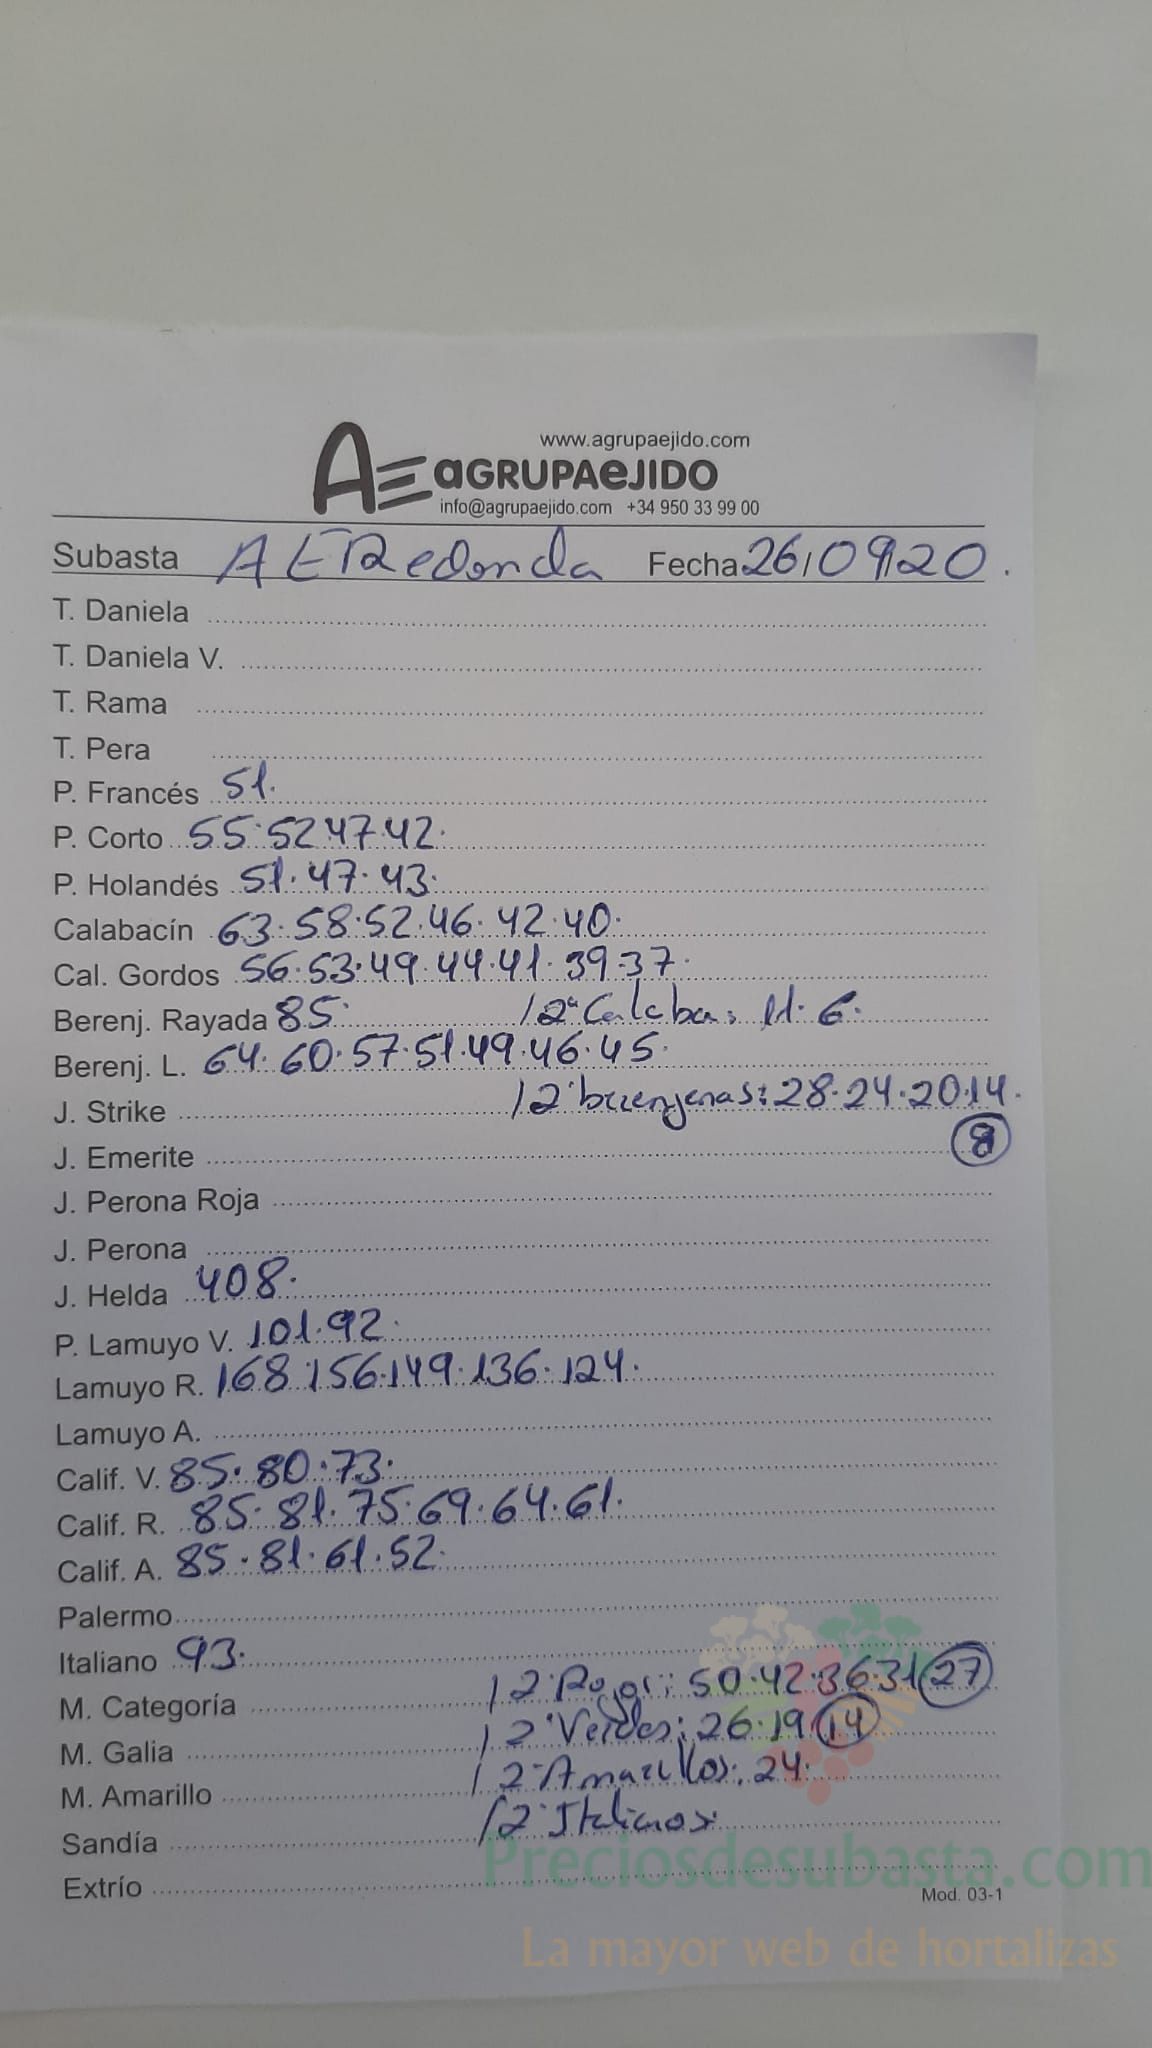 www.agrupaejido.com
AE aGRUPAeJIDO
info@agrupaejido.com +34 950 33 99 00
Subasta AE Redonda Fecha 26/09/20.
T. Daniela
T. Daniela V.
T. Rama
T. Pera
P. Francés 51.
P. Corto 55.52.47.42.
P. Holandés 51.47.43.
Calabacín 63.58.52.46.42.40.
Cal. Gordos 56.53.49.44.41.39.37.
Berenj. Rayada 85. / 2ª Calaba: 11.6.
Berenj. L. 64.60.57.51.49.46.45.
J. Strike / 2ª berenjenas: 28.24.20.14.
J. Emerite 8
J. Perona Roja
J. Perona
J. Helda 408.
P. Lamuyo V. 101.92.
Lamuyo R. 168.156.149.136.124.
Lamuyo A.
Calif. V. 85.80.73.
Calif. R. 85.81.75.69.64.61.
Calif. A. 85.81.61.52.
Palermo
Italiano 93.
M. Categoría / 2ª Rojos: 50.42.36.31 27
M. Galia / 2ª Verdes: 26.19 14
M. Amarillo / 2ª Amarillos: 24.
Sandía / 2ª Italianos:
Preciosdesubasta.com
Extrío
Mod. 03-1
La mayor web de hortalizas